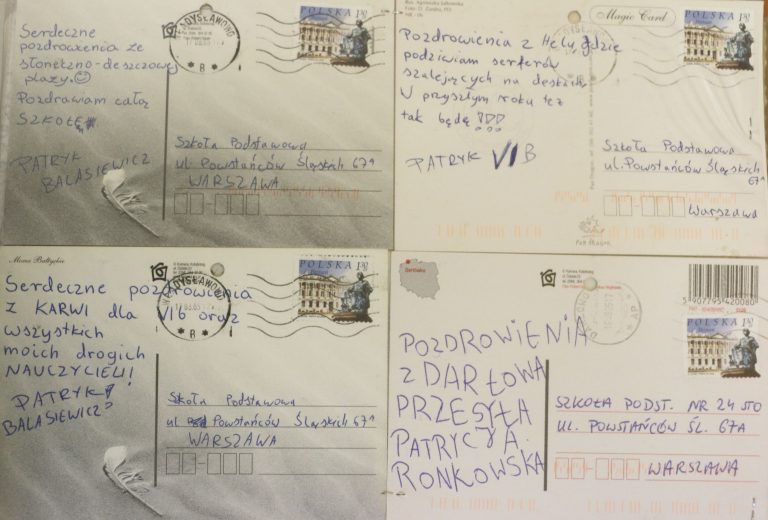 Serdeczne
pozdrowienia ze
słoneczno-deszczowej
plaży.
Pozdrawiam całą
SZKOŁĘ
PATRYK
BALASIEWICZ
WŁADYSŁAWOWO
POLSKA 1,30
Szkoła Podstawowa
ul. Powstańców Śląskich 67A
WARSZAWA
Magic Card
Pozdrowienia z Helu, gdzie
podziwiam serferów
szalejących na deskach.
W przyszłym roku też
tak będę!!!
PATRYK VI B
POLSKA 1,30
Szkoła Podstawowa
ul. Powstańców Śląskich
67A
Warszawa
Pan Dragon
Morze Bałtyckie
Serdeczne pozdrowienia
z KARWI dla VIb oraz
wszystkich
moich drogich
NAUCZYCIELI!
PATRYK
BALASIEWICZ
WŁADYSŁAWOWO
POLSKA 1,30
Szkoła Podstawowa
ul Powstańców Śląskich 67A
WARSZAWA
Darłówko
POZDROWIENIA
Z DARŁOWA
PRZESYŁA
PATRYCJA.
RONKOWSKA
5 907795 420080
POLSKA 1,30
SZKOŁA PODST. NR 24 STO
UL. POWSTAŃCÓW ŚL. 67A
WARSZAWA